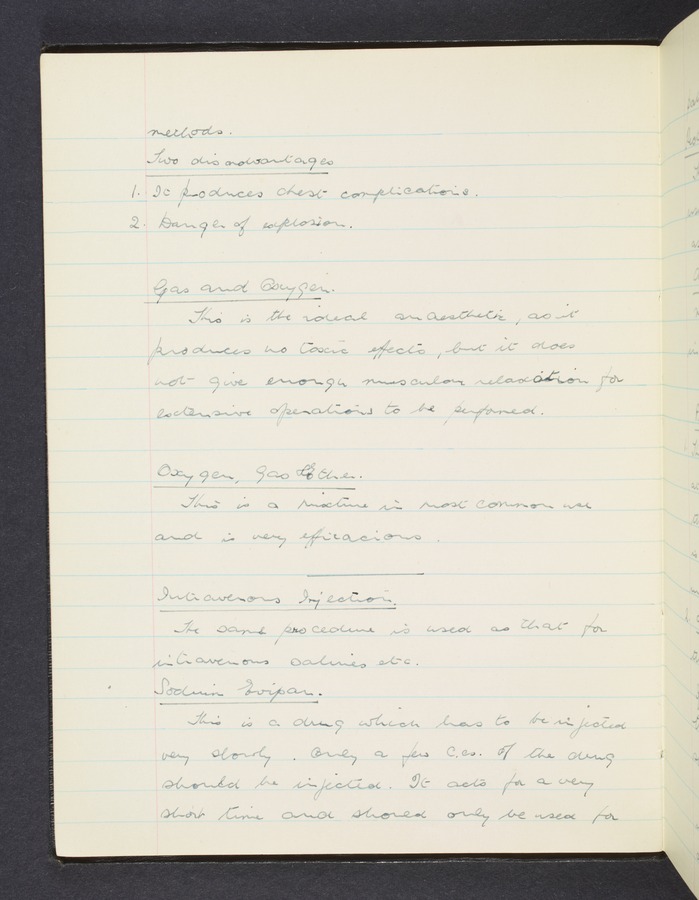 methods.
Two disadvantages
1. It produces chest complications.
2. Danger of explosion.
Gas and Oxygen.
This is the ideal anaesthetic, as it
produces no toxic effects, but it does
not give enough muscular relaxation for
extensive operations to be performed.
Oxygen, Gas Ether.
This is a mixture in most common use
and is very efficacious.
Intravenous Injection.
The same procedure is used as that for
intravenous salines etc.
Sodium Evipan.
This is a drug which has to be injected
very slowly. Only a few c.cs. of the drug
should be injected. It acts for a very
short time and should only be used for